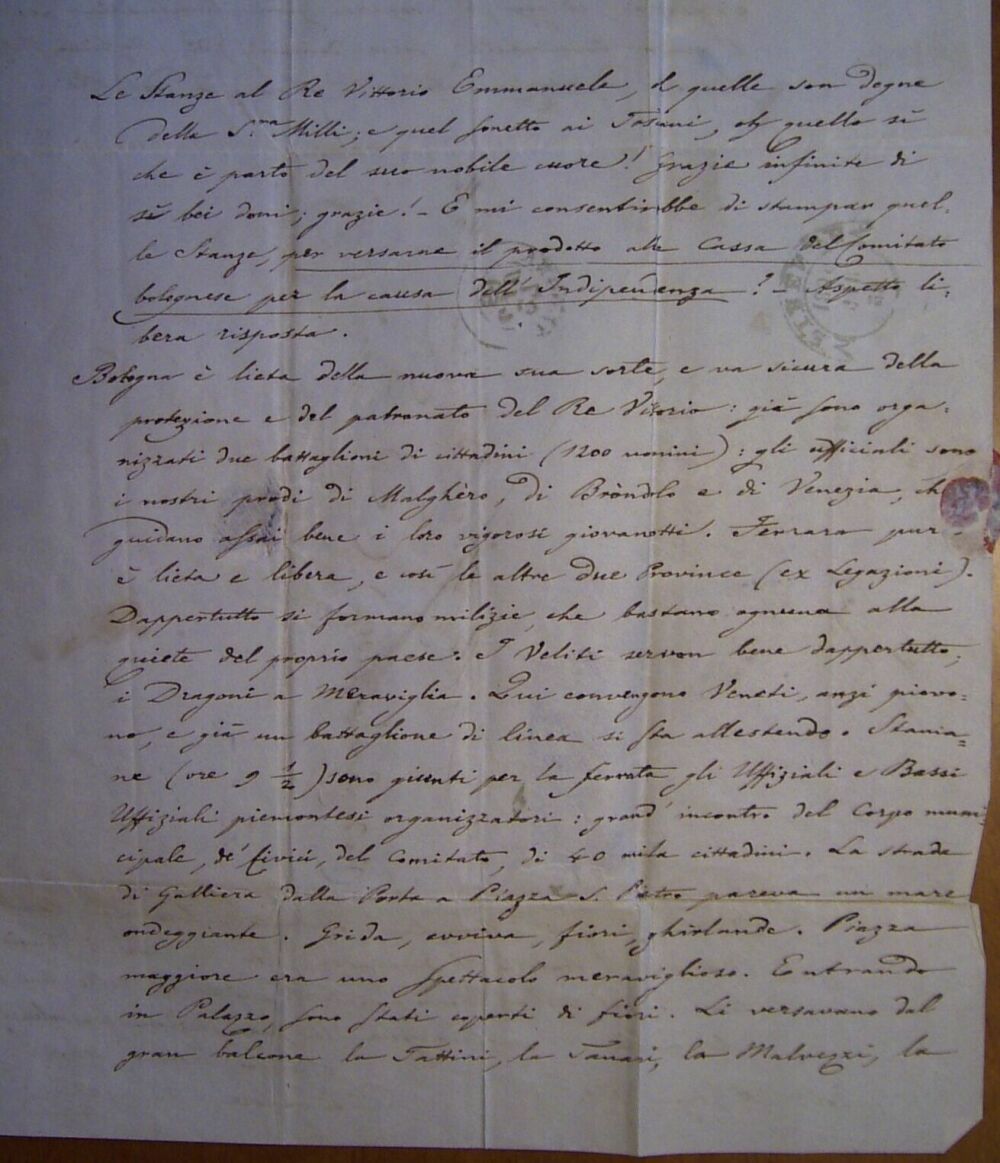 Le Stanze al Re Vittorio Emmanuele, oh quelle son degne
della S.ma Milli; e quel sonetto ai Toscani, oh quello sì
che è parto del suo nobile cuore! Grazie infinite di
sì bei doni; grazie! – E mi consentirebbe di stampar quel-
le Stanze, per versarne il prodotto alla Cassa del Comitato
bolognese per la causa dell'Indipendenza? – Aspetto li-
bera risposta.
Bologna è lieta della nuova sua sorte, e va sicura della
protezione e del patronato del Re Vittorio: già sono orga-
nizzati due battaglioni di cittadini (1200 uomini): gli ufficiali sono
i nostri prodi di Malghèro, di Bròndolo e di Venezia, che
guidano assai bene i loro vigorosi giovanotti. Ferrara pur
è lieta e libera, e così le altre due Province (ex Legazioni).
Dappertutto si formano milizie, che bastano ognuna alla
quiete del proprio paese. I Veliti servon bene dappertutto,
i Dragoni a meraviglia. Qui convengono Veneti, anzi piovo-
no, e già un battaglione di linea si sta allestendo. Stama-
ne (ore 9 1/2) sono giunti per la ferrata gli Uffiziali e Bassi
Uffiziali piemontesi organizzatori: grand'incontro del Corpo muni-
cipale, de' Civici, del Comitato, di 40 mila cittadini. La strada
di Galliera dalla Porta a Piazza S. Pietro pareva un mare
ondeggiante. Grida, evviva, fiori, ghirlande. Piazza
maggiore era uno spettacolo meraviglioso. Entrando
in Palazzo, sono stati coperti di fiori. Li versavano dal
gran balcone la Tattini, la Tanari, la Malvezzi, la